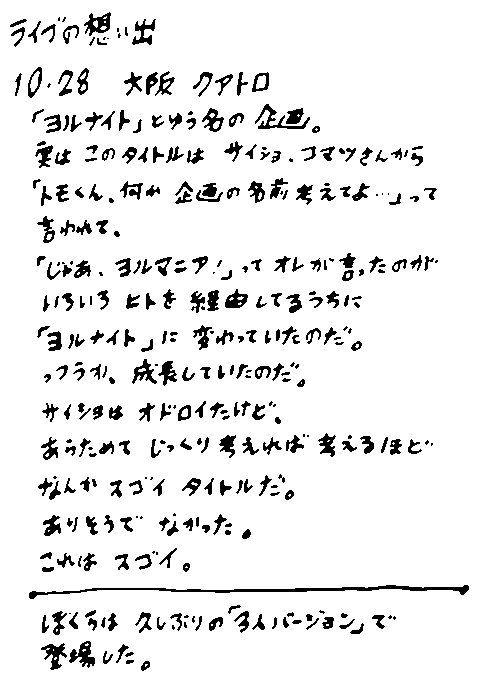 ライブの想い出
10.28 大阪 クアトロ
「ヨルナイト」とゆう名の 企画。
実は このタイトルは サイショ、コマツさんから
「トモくん、何か 企画の名前 考えてよ…」って
言われて、
「じゃあ、ヨルマニア!」って オレが言ったのが
いろいろ ヒトを 経由してるうちに
「ヨルナイト」に 変わっていたのだ。
っつうか、成長していたのだ。
サイショは オドロイたけど、
あらためて じっくり 考えれば 考えるほど
なんか スゴイ タイトルだ。
ありそうで なかった。
これは スゴイ。
ぼくらは 久しぶりの「3人バージョン」で
登場した。